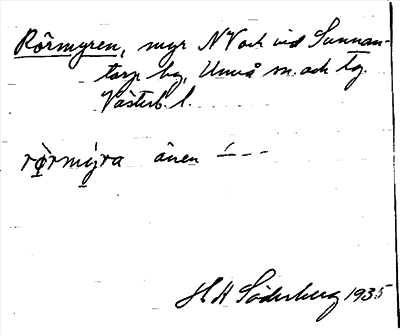 Rörmyren, myr NV och vid Sunnan-
torp by, Umeå sn. och tg.
Västerb. l.
rörmýra även
H H Söderberg 1935